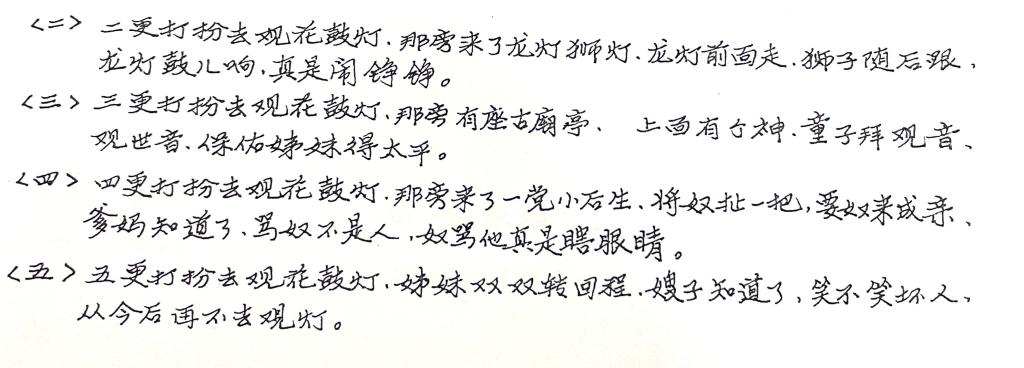 <二> 二更打扮去观花鼓灯.那旁来了龙灯狮灯.龙灯前面走.狮子随后跟,
龙灯鼓儿响,真是闹铮铮。
<三> 三更打扮去观花鼓灯.那旁有座古庙亭、 上面有个神.童子拜观音、
观世音.保佑姊妹得太平。
<四> 四更打扮去观花鼓灯.那旁来了一党小后生、将奴扯一把,要奴来成亲、
爹妈知道了、骂奴不是人,奴骂他真是瞎眼睛。
<五> 五更打扮去观花鼓灯.姊妹双双转回程.嫂子知道了,笑不笑坏人、
从今后再不去观灯。